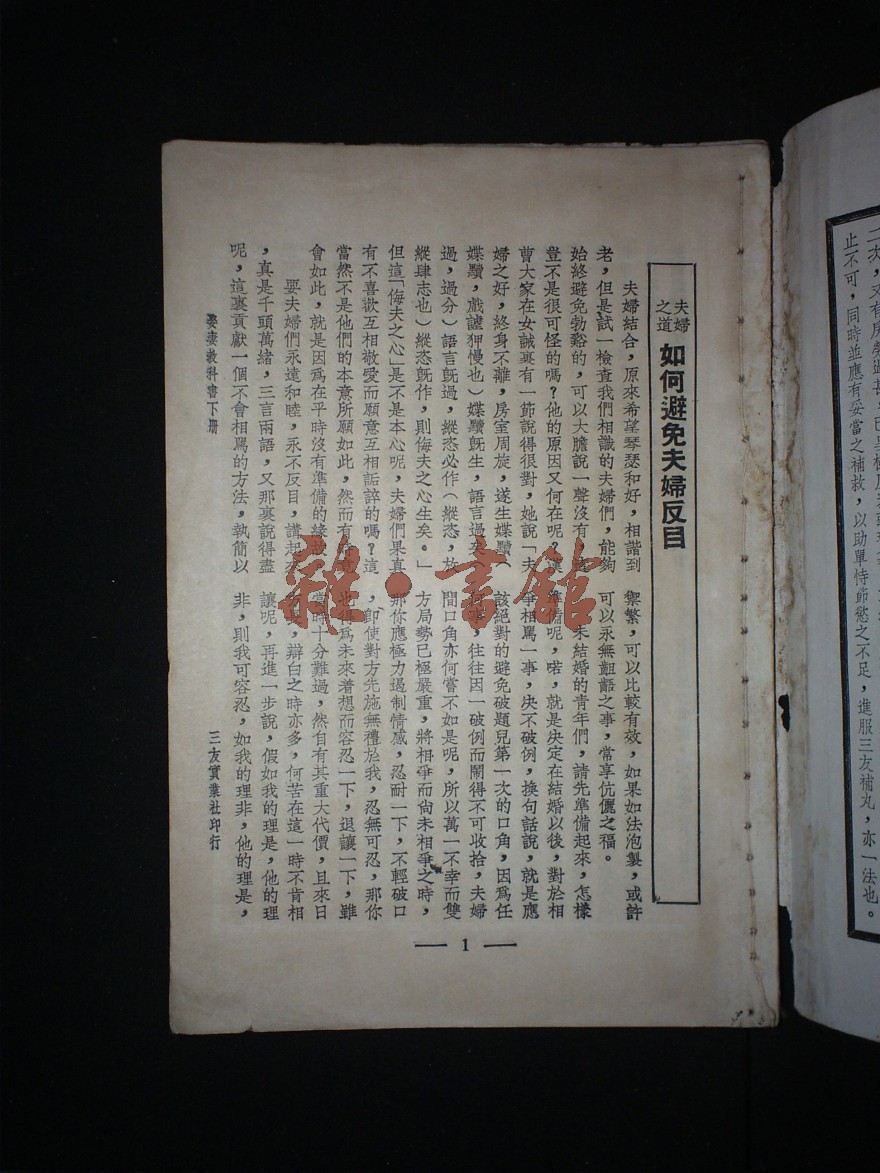 二次,又有房勞過甚,已
止不可,同時並應有妥當之補救,以助單恃節慾之不足,進服三友補丸,亦一法也。
夫婦之道
如何避免夫婦反目
夫婦結合,原來希望琴瑟和好,相諧到
老,但是試一檢查我們相識的夫婦們,能夠
始終避免勃谿的,可以大膽說一聲沒有,這
豈不是很可怪的嗎?他的原因又何在呢?漢
曹大家在女誡裏有一節說得很對,她說「夫
婦之好,終身不離,房室周旋,遂生媟黷(
媟黷,戲謔狎慢也)媟黷旣生,語言過矣(
過,過分)語言旣過,縱恣必作(縱恣,放
縱肆志也)縱恣旣作,則侮夫之心生矣。」
但這「侮夫之心」是不是本心呢,夫婦們果真
有不喜歡互相敬愛而願意互相詬誶的嗎?這
當然不是他們的本意所願如此,然而有時竟
會如此,就是因爲在平時沒有準備的緣故。
要夫婦們永遠和睦,永不反目,講起來
,真是千頭萬緒,三言兩語,又那裏說得盡
呢,這裏貢獻一個不會相罵的方法,執簡以
禦繁,可以比較有效,如果如法泡製,或許
可以永無齟齬之事,常享伉儷之福。
未結婚的青年們,請先準備起來,怎樣
準備呢,喏,就是決定在結婚以後,對於相
爭相罵一事,決不破例,換句話說,就是應
該絕對的避免破題兒第一次的口角,因爲任
何事,往往因一破例而鬧得不可收拾,夫婦
間口角亦何嘗不如是呢,所以萬一不幸而雙
方局勢已極嚴重,將相爭而尚未相爭之時,
那你應極力遏制情感,忍耐一下,不輕破口
,即使對方先施無禮於我,忍無可忍,那你
也得爲未來着想而容忍一下,退讓一下,雖
當時十分難過,然自有其重大代價,且來日
方長,辯白之時亦多,何苦在這一時不肯相
讓呢,再進一步說,假如我的理是,他的理
非,則我可容忍,如我的理非,他的理是,
娶妻教科書下册
三友實業社印行
— 1 —
雜·書館